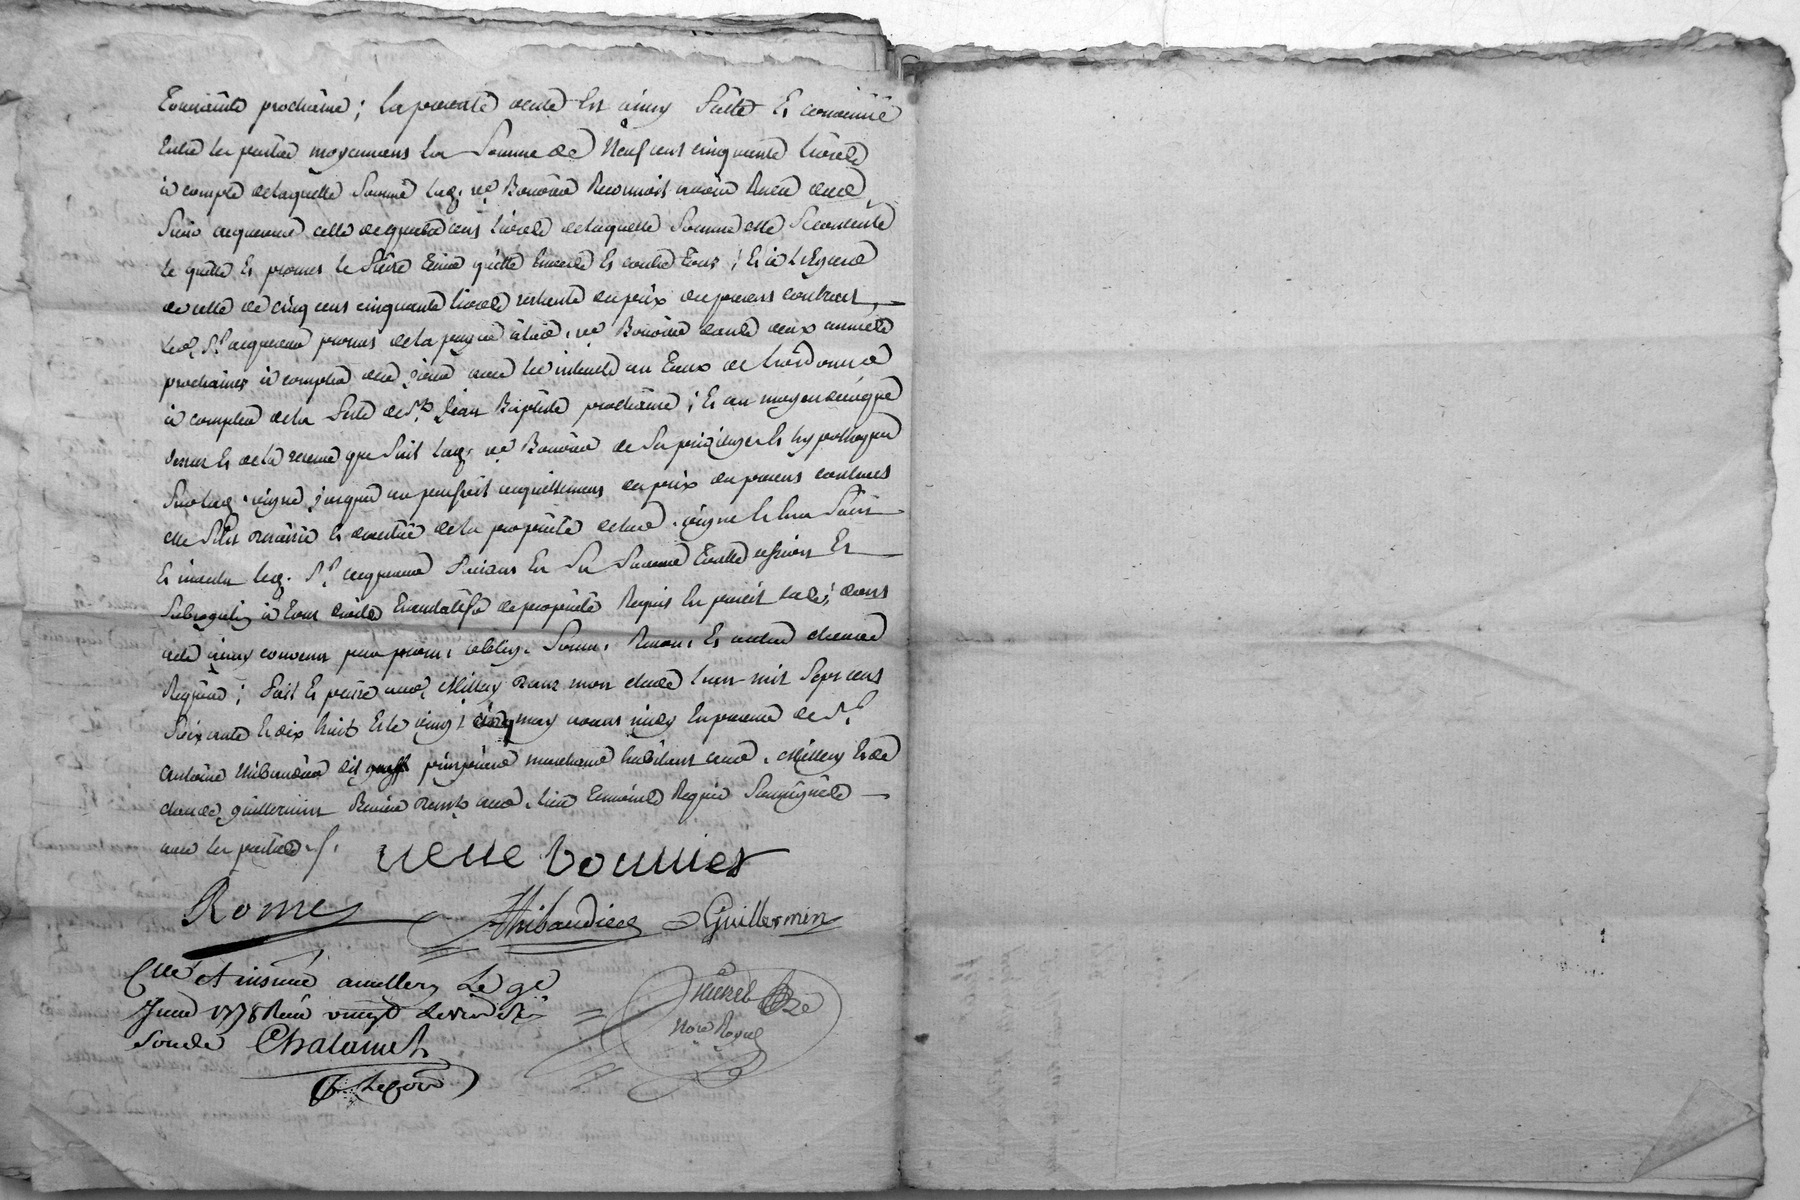 Toussainte prochaine; la presente vente est ainsy faitte et convenüe
entre les parties moyennans la somme de neuf cens cinquante livres
a compte de laquelle somme lad. ve Bonnier reconnoit avoir reçu dud.
sieur acquereur celle de quatre cens livres de laquelle somme elle se contente
le quitte et promet le faire tenir quitte envers et contre tous; et a l'egard
de celle de cinq cens cinquante livres restante du prix du presens contract,
led. Sr acquereur promet de la payer a lad. ve Bonnier dans deux années
prochaines a compter de ce jour avec les interets au taux de l'ordonnce
a compter de la fête de St Jean Baptiste prochaine; et au moyen de ce que
dessus et de la reserve que fait lad. ve Bonnier de ses privileges et hypotheques
sur lad. vigne jusques au parfait acquittement du prix du presens contract
elle s'est demise et devetüe de la propriété de lad. vigne et en a saisi
et investu led. Sr acquereur faisans en sa faveur toutte cession et
subrogation a tous droits translatifs de propriété requis en pareil cas; dont
acte ainsy convenu par prom. oblig. soum. renon. et autres clauses
requises; fait et passé aud. Millery dans mon etude l'an mil sept cens
soixante et dix huit et le vingt cinq may avant midy en presence de Sr
Antoine Thibaudier dit prinsivier marchand habitant aud. Millery et de
Claude Guillermin demeurt aud. lieu temoins requis soussignés
avec les parties ./.
veue bonnier
Rome
Thibaudier Guillermin
Cllé et insinué a millery Le 9e
Juin 1778 Reçu vingt
sous Chalamel
Nore Royal